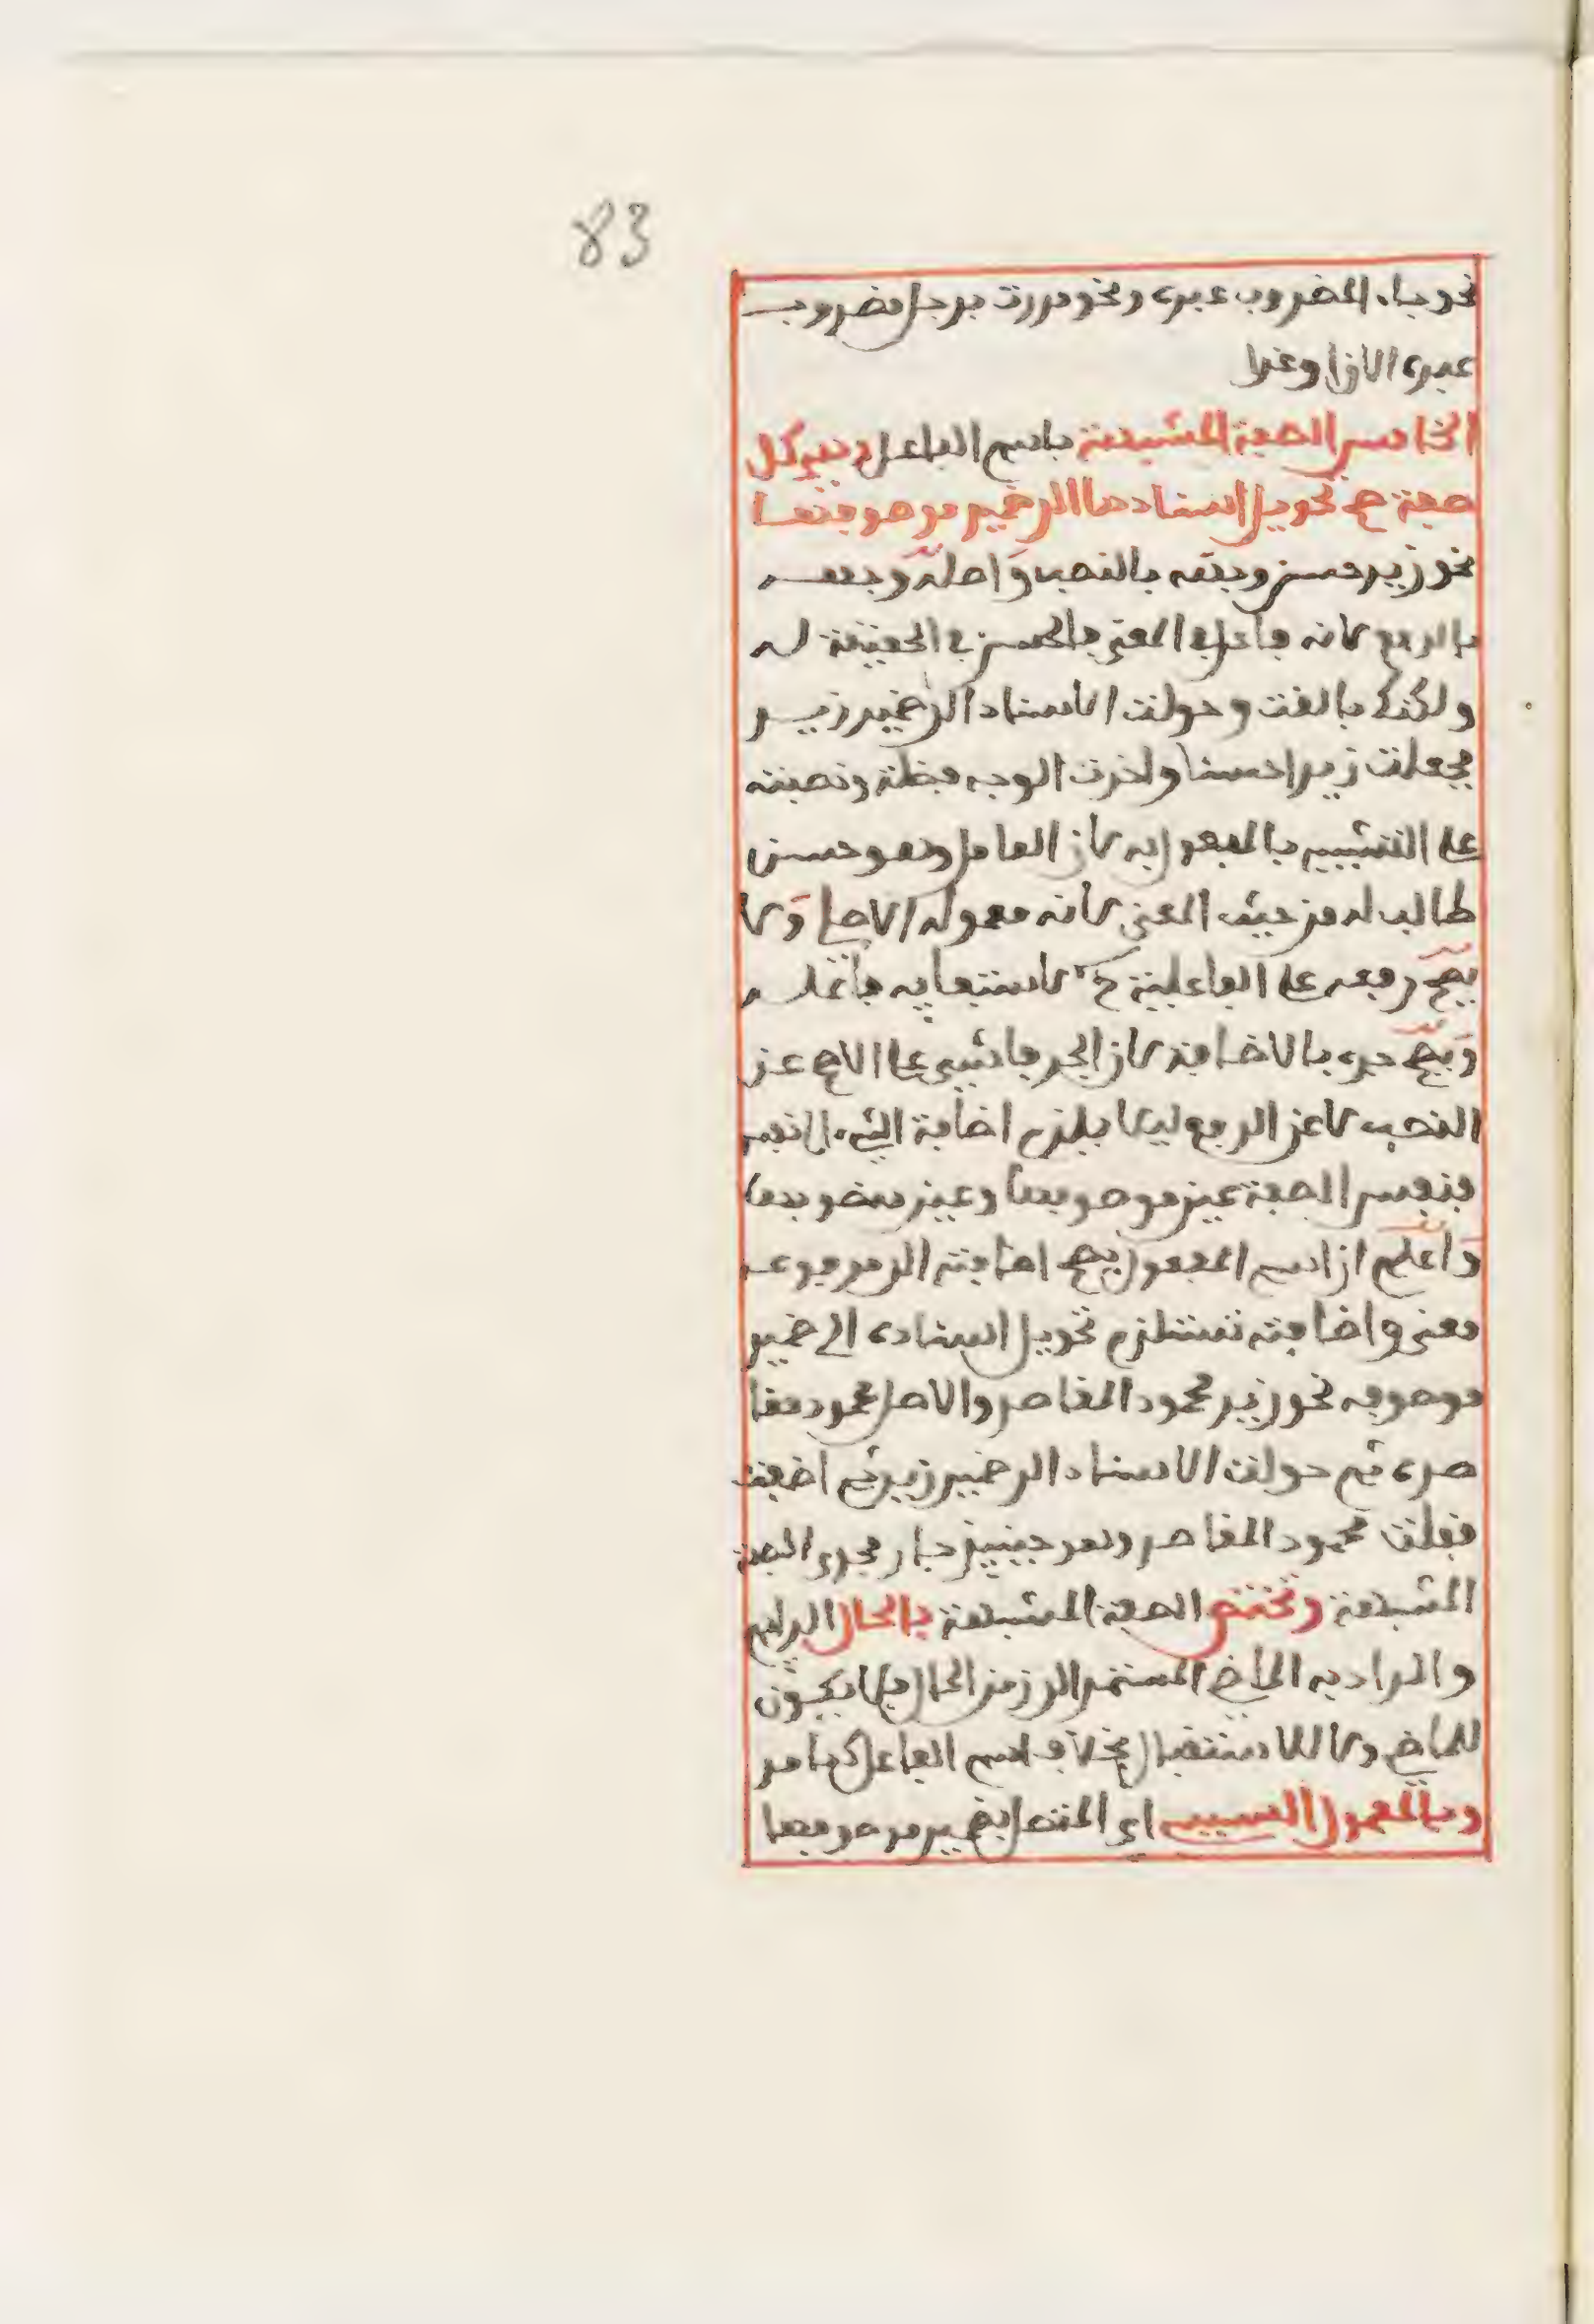 83
نحو جاء المضروب عبده ونحو مررت برجل مضروب
عبده الان او غدا
الخامس الصفة المشبهة باسم الفاعل وهي كل
صفة صح تحويل اسنادها الى ضمير موصوفها
نحو زيد حسن وجهه بالنصب واصله وجهه
بالرفع لانه فاعل في المعنى فالحسن في الحقيقة له
ولكنك بالغت وحولت الاسناد الى ضمير زيد
فجعلت زيدا حسنا واخرت الوجه فضلة ونصبته
على التشبيه بالمفعول به لان العامل وهو حسن
طالب له من حيث المعنى لانه معموله الاصلي ولا
يصح رفعه على الفاعلية ح لاستيفائه فاعله
ويصح جره بالاضافة لان الجر ناشئ على الاصح عن
النصب لا عن الرفع ليلا يلزم اضافة الشيء الى نفسه
فنفس الصفة عين موصوفها وعين منصوبها
واعلم ان اسم المفعول يصح اضافته الى مرفوعه
معنى واضافته تستلزم تحويل اسناده الى ضمير
موصوفه نحو زيد محمود المقاصد والاصل محمود مقا
صده ثم حولت الاسناد الى ضمير زيد ثم اضفت
فقلت محمود المقاصد وهو حينئذ جار مجرى الصفة
المشبهة وتختص الصفة المشبهة بالحال الدايم
والمراد به الماضي المستمر الى زمن الحال فلا يكون
للماضي ولا للاستقبال بخلاف اسم الفاعل كما مر
وبالمعمول السببي اي المتصل بضمير موصوفها